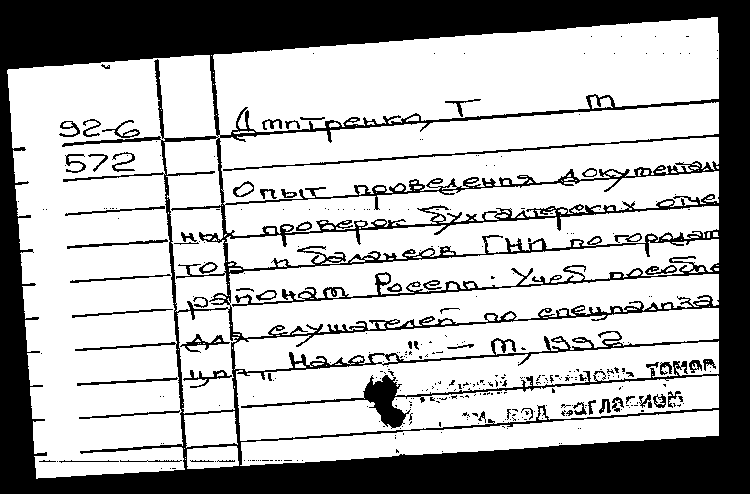 92-6 Дмитренко, Т М
572
Опыт проведения документаль
ных проверок бухгалтерских отче
тов и балансов ГНИ по городам
районам России: Учеб пособие
для слушателей по специализа
ции „Налоги" — М, 1992
перечень томов
см. под заглавием